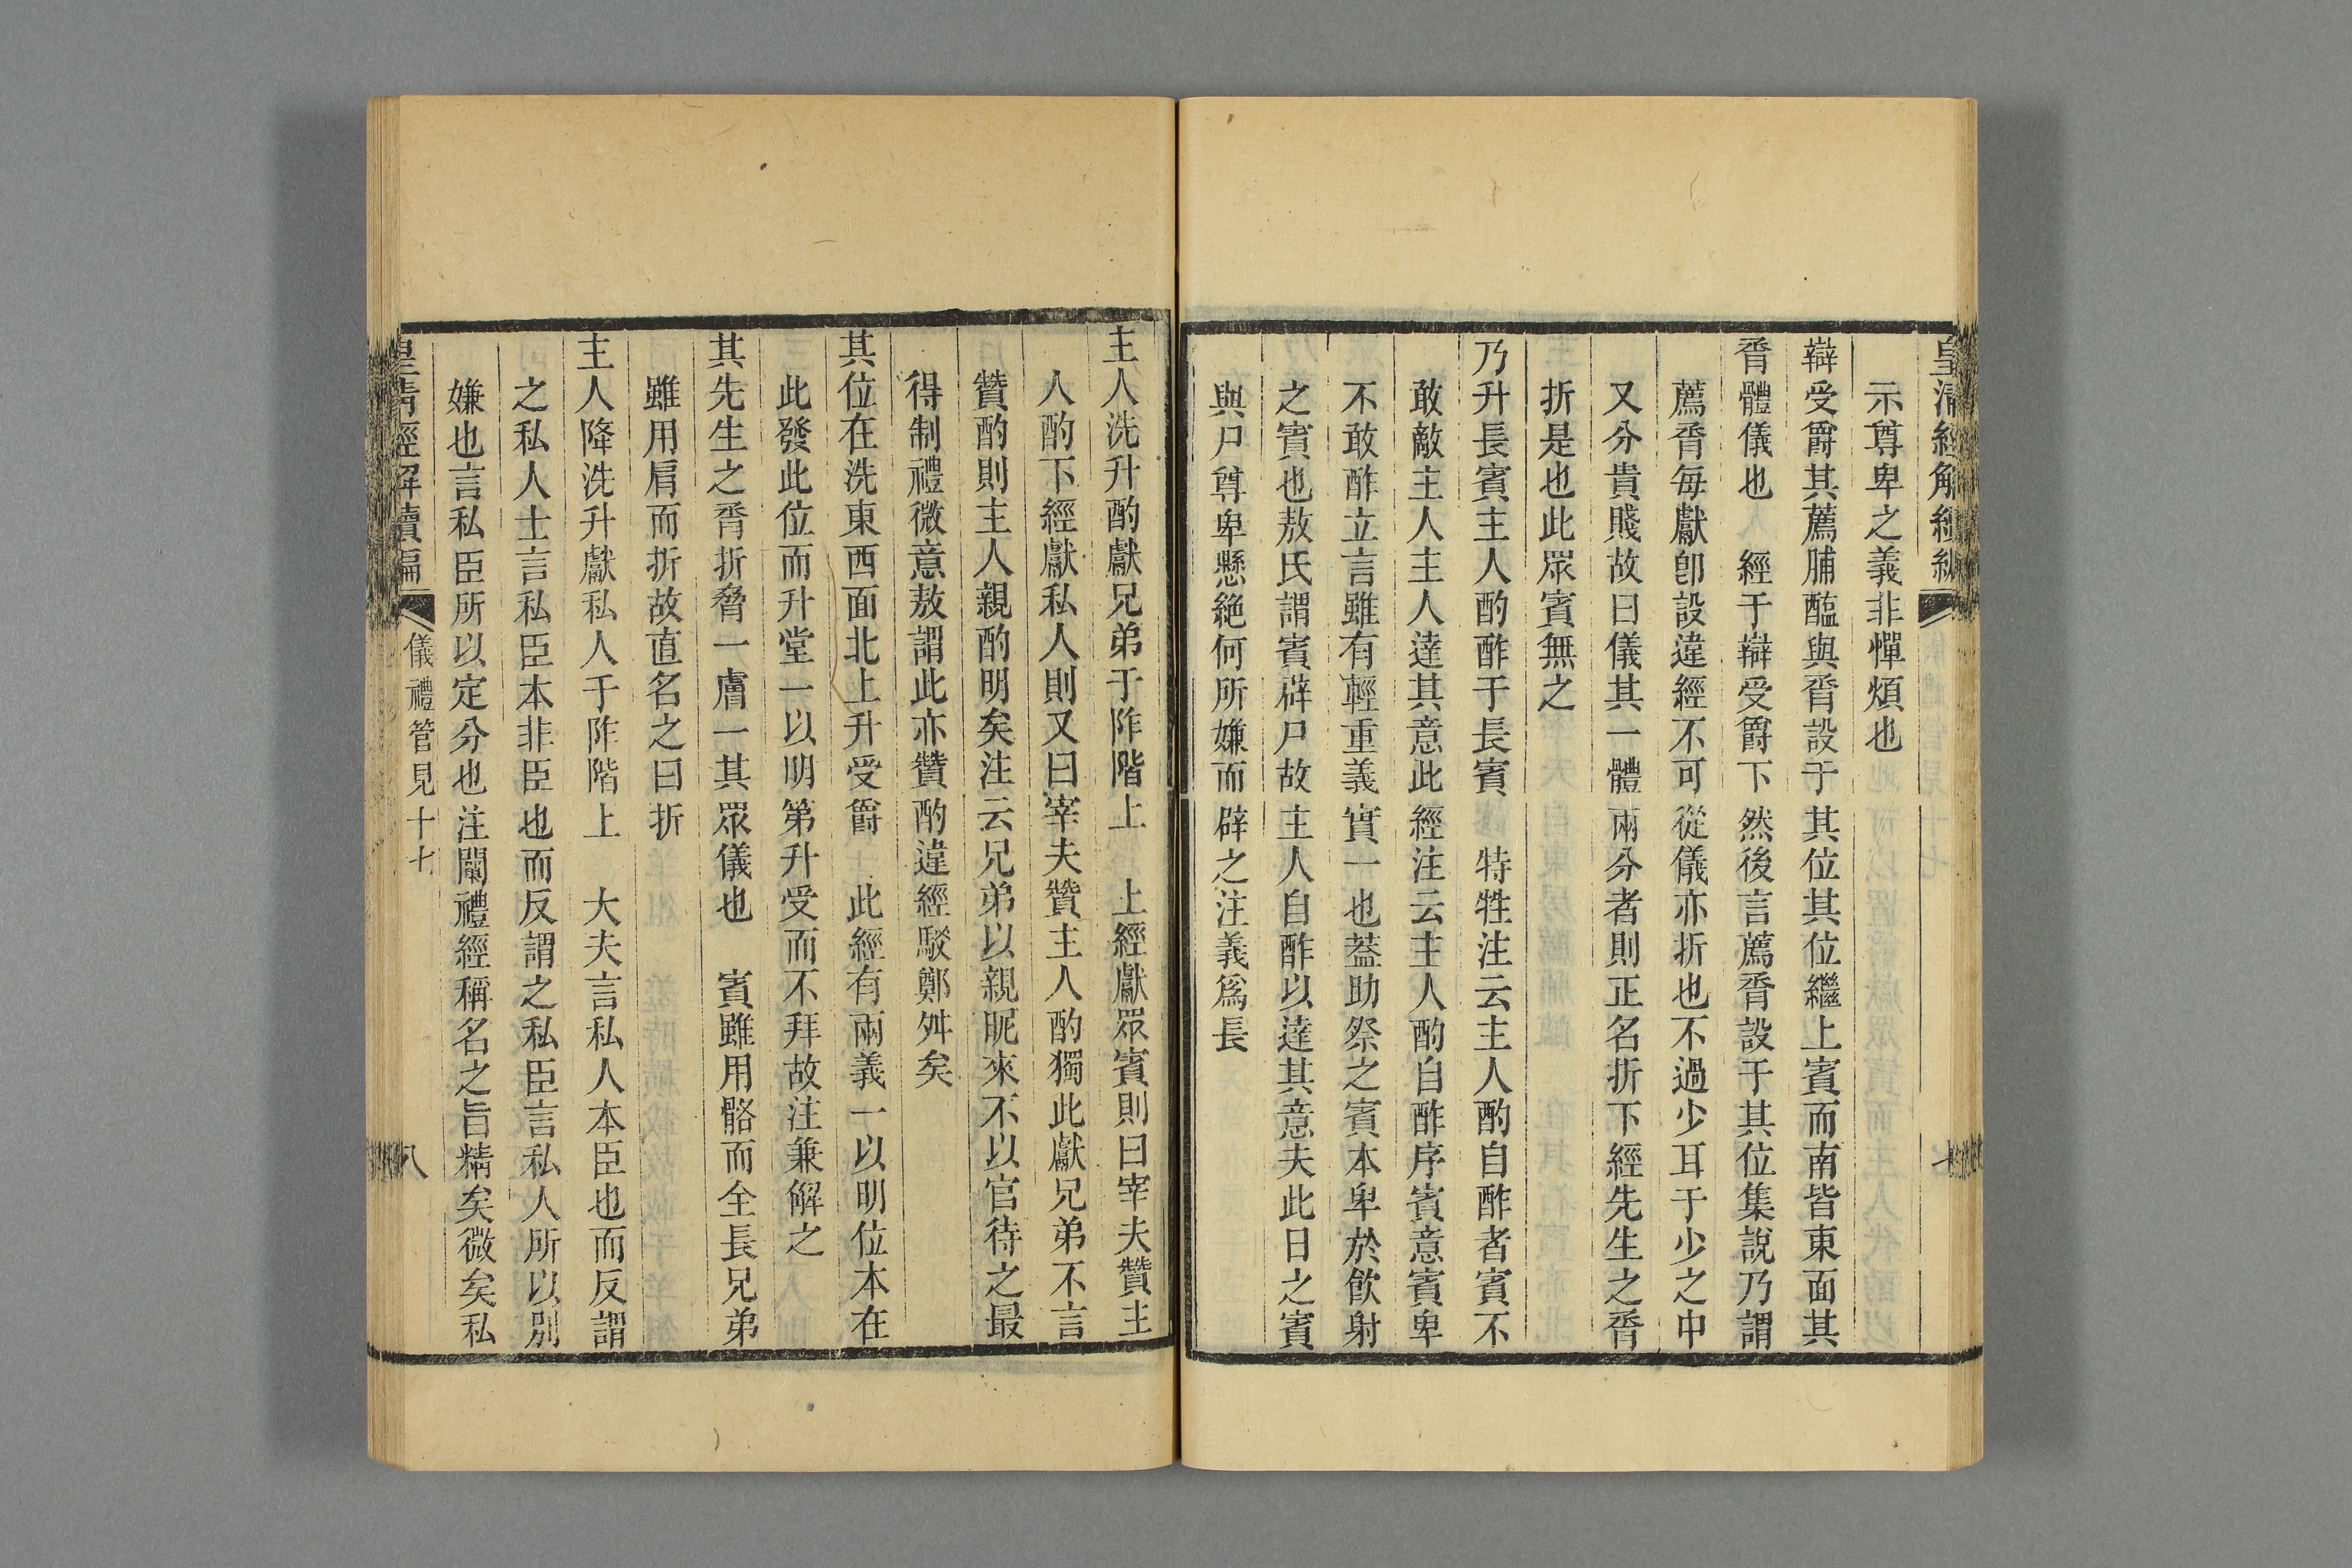 皇清經解續編
七
示尊卑之義非憚煩也
辯受爵其薦脯醢與脀設于其位其位繼上賓而南皆東面其
脀體儀也　經于辯受爵下然後言薦脀設于其位集說乃謂
薦脀每獻卽設違經不可從儀亦折也不過少耳于少之中
又分貴賤故曰儀其一體兩分者則正名折下經先生之脀
折是也此眾賓無之
乃升長賓主人酌酢于長賓　特牲注云主人酌自酢者賓不
敢敵主人主人達其意此經注云主人酌自酢序賓意賓卑
不敢酢立言雖有輕重義實一也葢助祭之賓本卑於飮射
之賓也敖氏謂賓辟尸故主人自酢以達其意夫此日之賓
與尸尊卑懸絶何所嫌而辟之注義爲長
主人洗升酌獻兄弟于阼階上　上經獻眾賓則曰宰夫贊主
人酌下經獻私人則又曰宰夫贊主人酌獨此獻兄弟不言
贊酌則主人親酌明矣注云兄弟以親昵來不以官待之最
得制禮微意敖謂此亦贊酌違經駮鄭舛矣
其位在洗東西面北上升受爵　此經有兩義一以明位本在
此發此位而升堂一以明第升受而不拜故注兼解之
其先生之脀折脅一膚一其眾儀也　賓雖用骼而全長兄弟
雖用肩而折故直名之曰折
主人降洗升獻私人于阼階上　大夫言私人本臣也而反謂
之私人士言私臣本非臣也而反謂之私臣言私人所以別
嫌也言私臣所以定分也注闡禮經稱名之旨精矣微矣私
皇清經解續編
儀禮管見十七
八